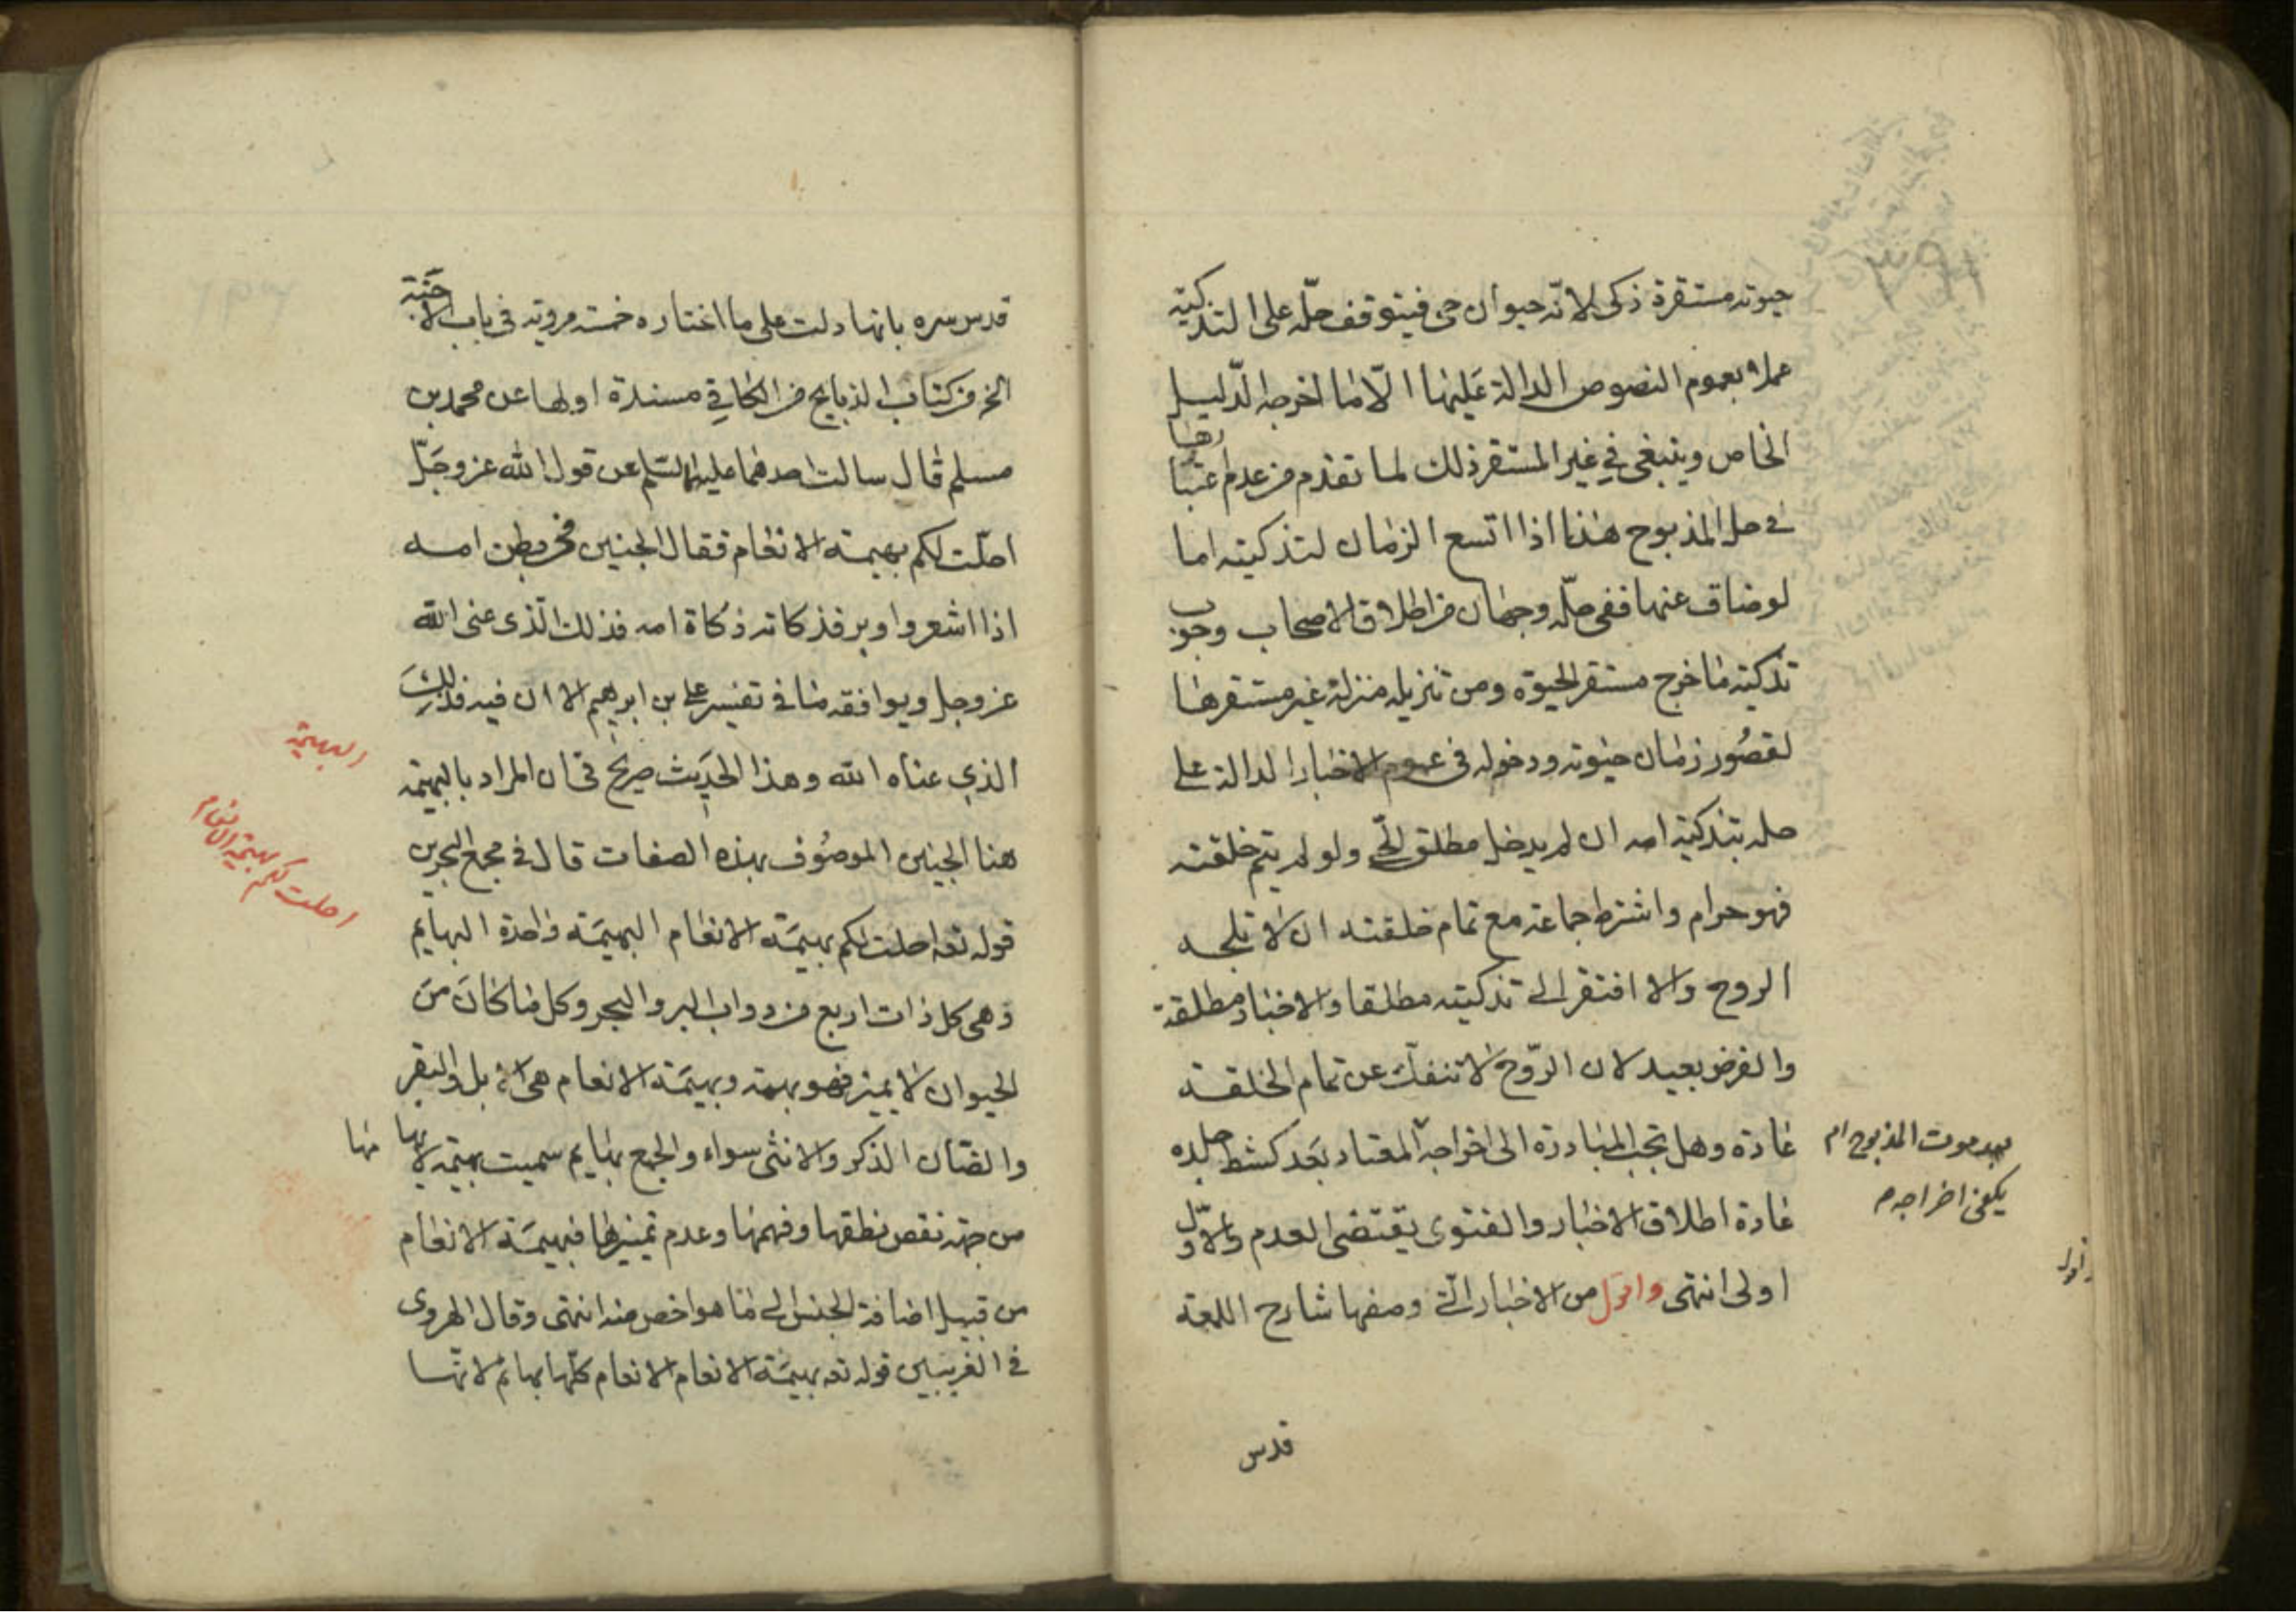 حيوته مستقرة ذكى لانّه حيوان حى فيتوقف حلّه على التذكية
عملا بعموم النصوص الدالة عليها الّا ما اخرجه الدّليل
الخاص وينبغى في غير المستقر ذلك لما تقدم من عدم اعتبارها
فى حل المذبوح هذا اذا اتسع الزمان لتذكيته اما
لو ضاق عنها ففى حلّه وجهان من اطلاق الاصحاب وجوب
تذكيته ما خرج مستقر الحيوة ومن تنزيله منزلة غير مستقرها
لقصُور زمان حيوته ودخوله فى عموم الاخبار الدالة على
حله بتذكية امه ان لم يدخل مطلق الحىّ ولو لم يتم خلقته
فهو حرام واشترط جماعة مع تمام خلقته ان لا تلجه
الروح والا افتقر الى تذكيته مطلقا والاخبار مطلقة
والفرض بعيد لان الرّوح لا تنفك عن تمام الخلقة
عادة وهل تجب المبادرة الى اخراجه المعتاد بَعَد كشط جلده
بعد موت المذبوح ام
يكفى اخراجه م
عادة اطلاق الاخبار والفتوى يقتضى العدم والاوّل
اولى انتهى واقول من الاخبار الّتى وصفها شارح اللمعة
قدس
قدس سره بانها دلت على ما اختاره خمسة مروية فى باب الاجنّة
الخ من كتاب الذبايح من الكافي مسندة اولها عن محمد بن
مسلم قال سالت احدهما عليهما السّلم عن قول الله عز وجَلّ
احلّت لكم بهيمة الانعام فقال الجنين فى بطن امه
اذا اشعر واوبر فذكاته ذكاة امه فذلك الّذى عنى الله
عز وجل ويوافقه ما فى تفسير على بن ابرهيم الا ان فيه فذلكَ
الذي عناه الله وهذا الحديث صريح فى ان المراد بالبهيمة
البهيمة
هنا الجنين الموصُوف بهذه الصفات قال فى مجمع البحرين
احلت لكم بهيمة الانعام
قوله تعه احلت لكم بهيمَة الانعام البهيمَة واحدة البهايم
وهى كل ذات اربع من دواب البر والبحر وكل ما كانَ منَ
الحيوان لا يميز فهو بهيمة وبهيمَة الانعام هى الابل والبقر
والضان الذكر والانثى سواء والجمع بهايم سميت بهيمة لانها
من جهة نقص نطقها وفهمها وعدم تميزها فبهيمَة الانعام
من قبيل اضافة الجنس الى ما هو اخص منه انتهى وقال الهروى
فى الغريبين قوله تعه بهيمَة الانعام الانعام كلّها بهائم لانّها